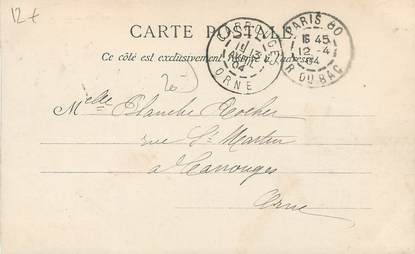 12€
CARTE POSTALE
Ce côté est exclusivement réservé à l'adresse
CARROUGES
13
AVRIL
04
ORNE
PARIS 60
16 45
12 -4
04
R. DU BAC
Melle Blanche Rocher
rue St Martin
à Carrouges
Orne